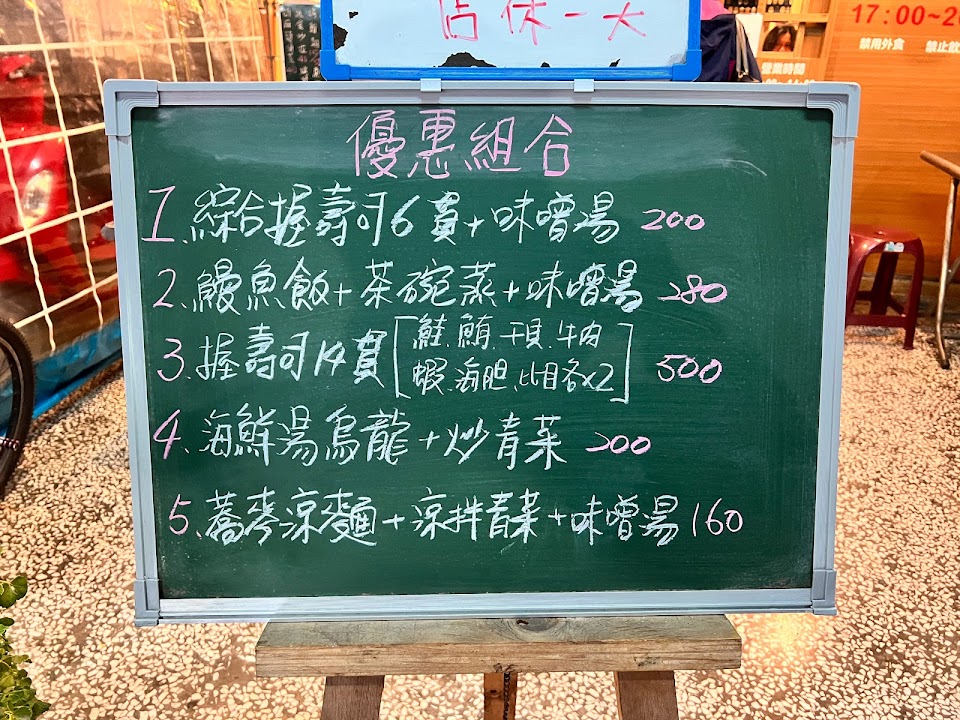 店休一天
17:00~2
禁用外食 禁止飲
營業時間
優惠組合
1.綜合握壽司6貫+味噌湯 200
2.鰻魚飯+茶碗蒸+味噌湯 280
3.握壽司14貫[鮭.鮪.干貝.牛肉
蝦.海胆.比目各x2] 500
4.海鮮湯烏龍+炒青菜 200
5.蕎麥涼麵+涼拌青菜+味噌湯 160